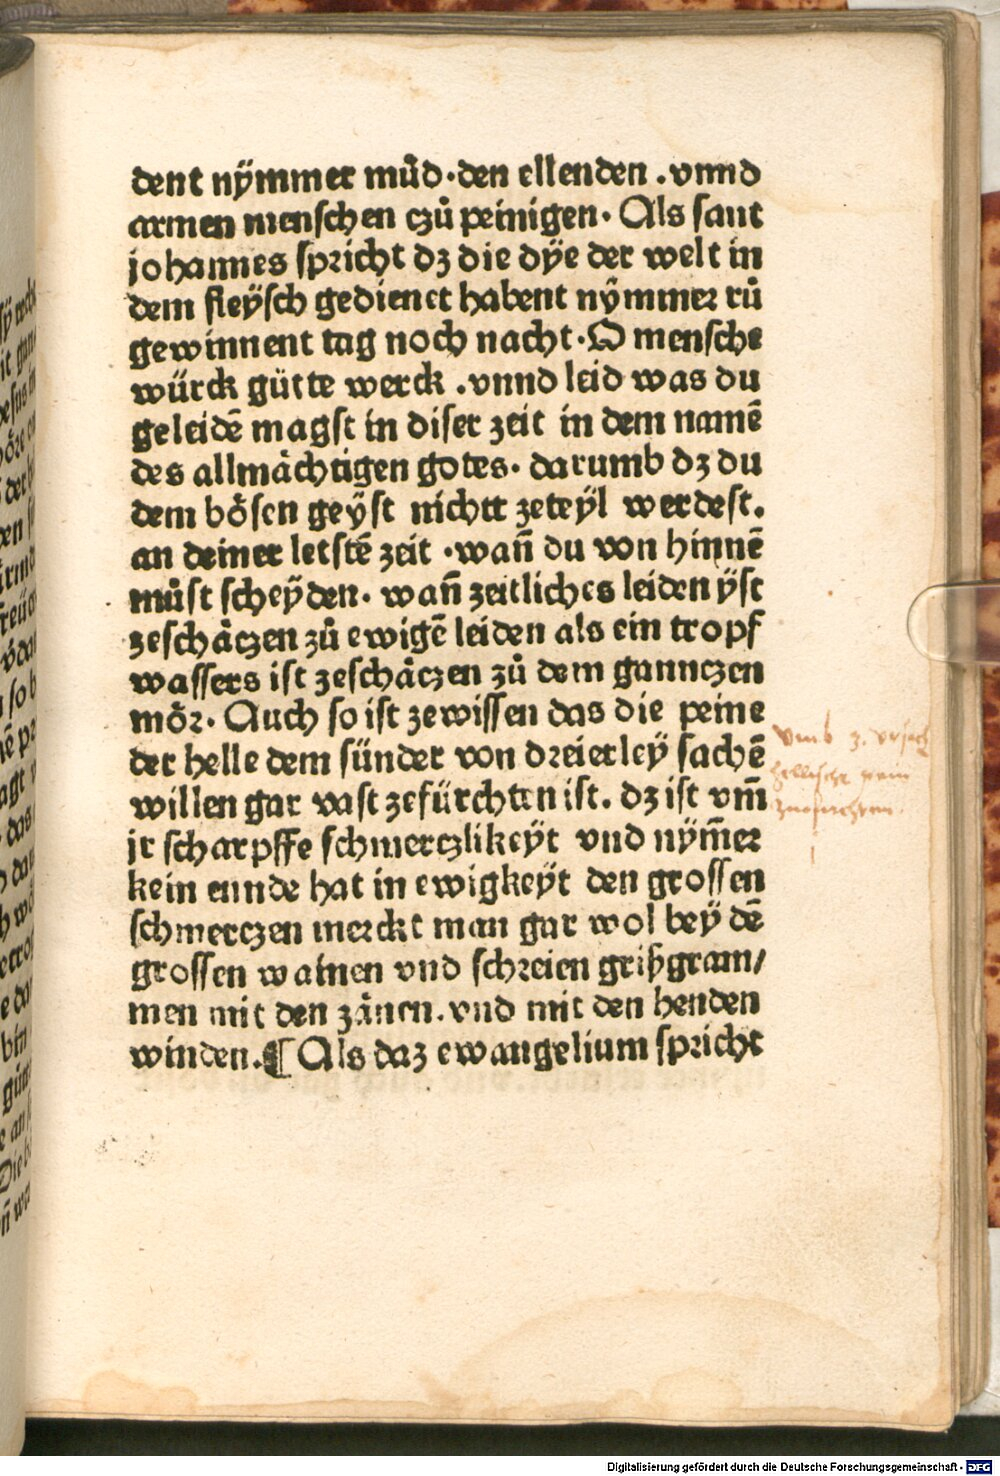 dent nÿmmer můd·den ellenden .vnnd
armen menschen czů peinigen· Als sant
johannes spricht dz die dÿe der welt in
dem fleÿsch gedienet habent nÿmmer rů
gewinnent tag noch nacht·O mensche
würck gütte werck .vnnd leid was du
geleidē magst in diser zeit in dem namē
des allmächtigen gotes· darumb dz du
dem bösen geÿst nichtt zeteÿl werdest.
an deiner letstē zeit ·wañ du von hinnē
můst scheÿden· wañ zeitliches leiden ÿst
zeschäczen zů ewigē leiden als ein tropf
wassers ist zeschäczen zů dem gannczen
mör· Auch so ist zewissen das die peine
der helle dem sünder von dreierleÿ sachē
willen gar vast zefürchten ist. dz ist vm̄
jr scharpffe schmerczlikeÿt vnd nÿm̄er
kein ennde hat in ewigkeÿt den grossen
schmerczen merckt man gar wol beÿ dē
grossen wainen vnd schreien grißgram/
men mit den zänen.vnd mit den henden
winden.¶ Als daz ewangelium spricht
vmb 3. vrsach
hellische pein
zuofurchten.
Digitalisierung gefördert durch die Deutsche Forschungsgemeinschaft - DFG